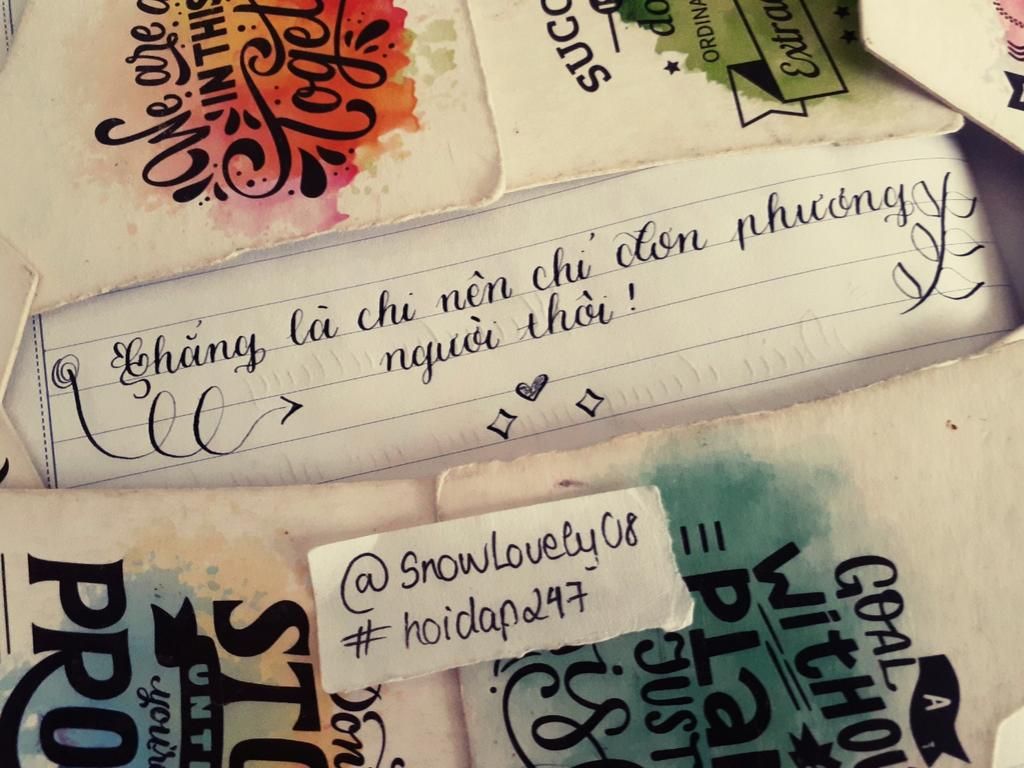 We are
IN THIS
Together
SUCC
do
ORDINA
Extra
Chẳng là chi nên chỉ đơn phương
người thôi!
@SnowLovely08
#hoidap247
PRO
UNT
your
STO
Don
GOAL
WITHOU
A
PLAN
JUST
is